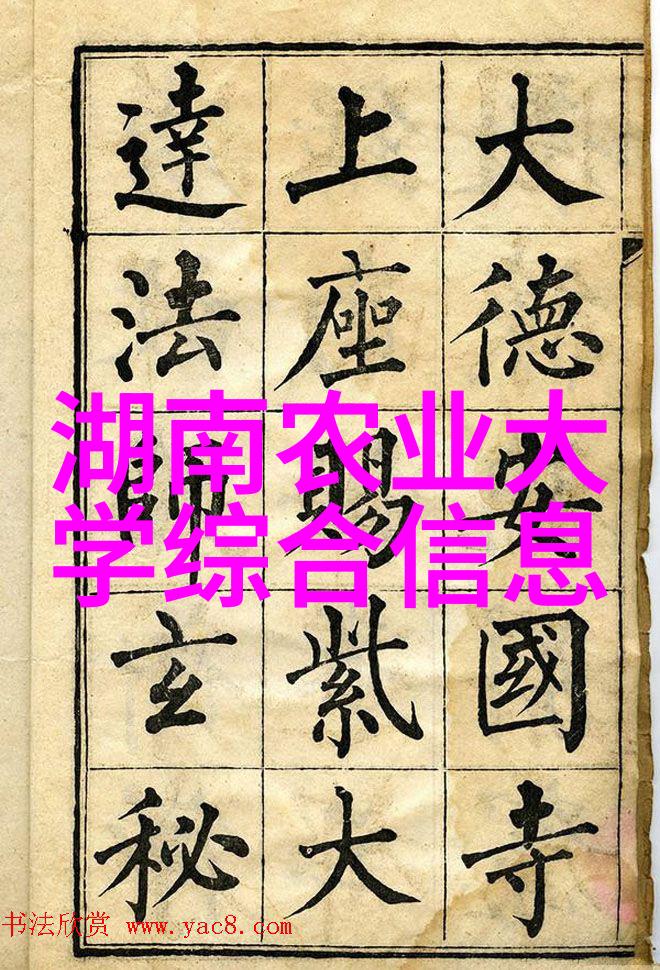 大德安國寺
上座賜紫大
達法師玄秘
湖南农业大
学综合信息
书法欣赏 www.yac8.com